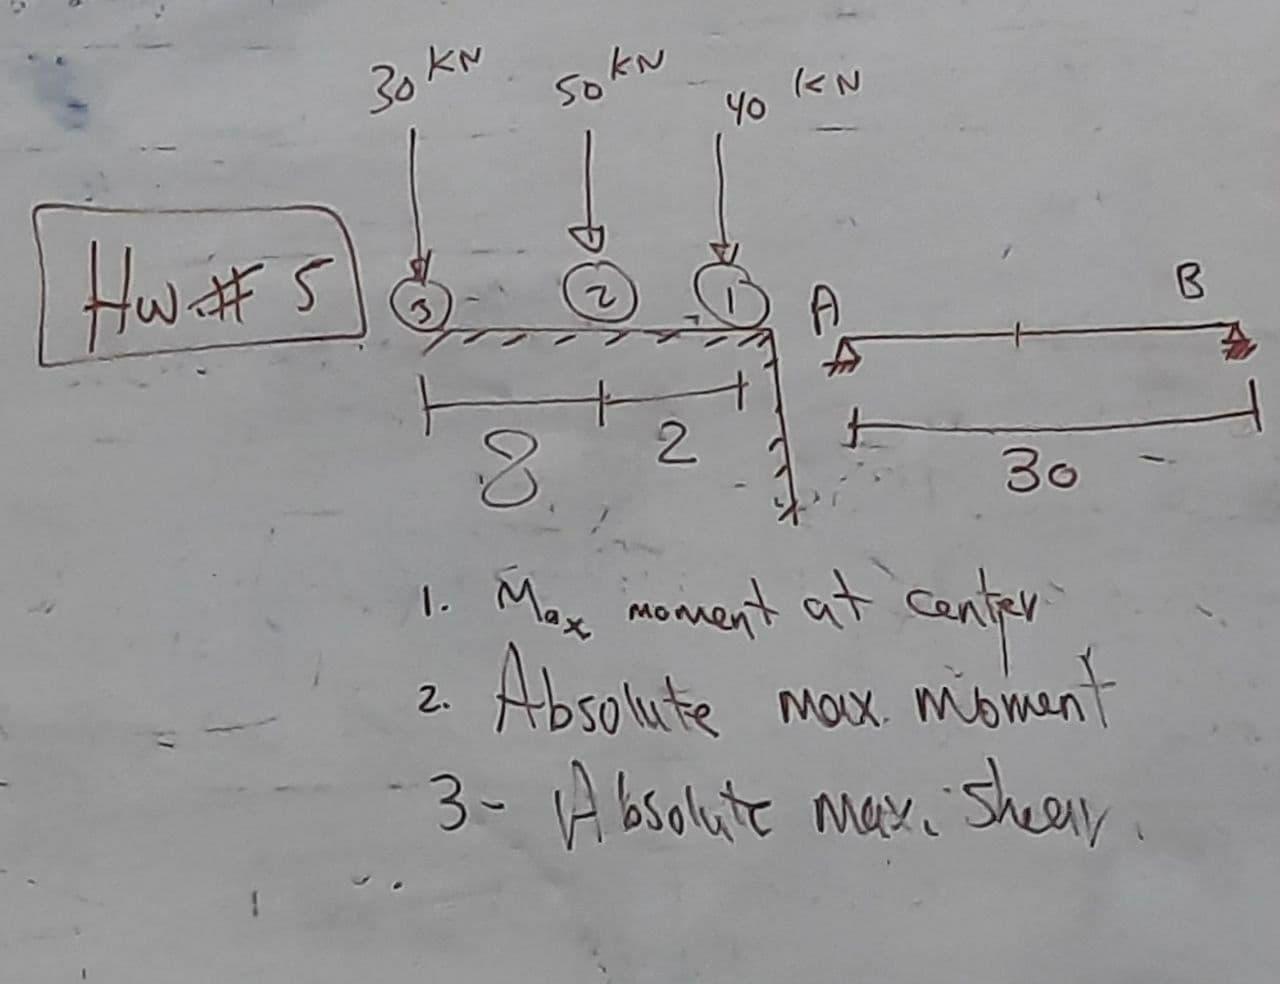 30 KN
50 KN
40 KN
Hw.# 5
3
2
1
A
B
8
2
30
1. Max moment at center
2. Absolute max. moment
3- Absolute max. Shear.